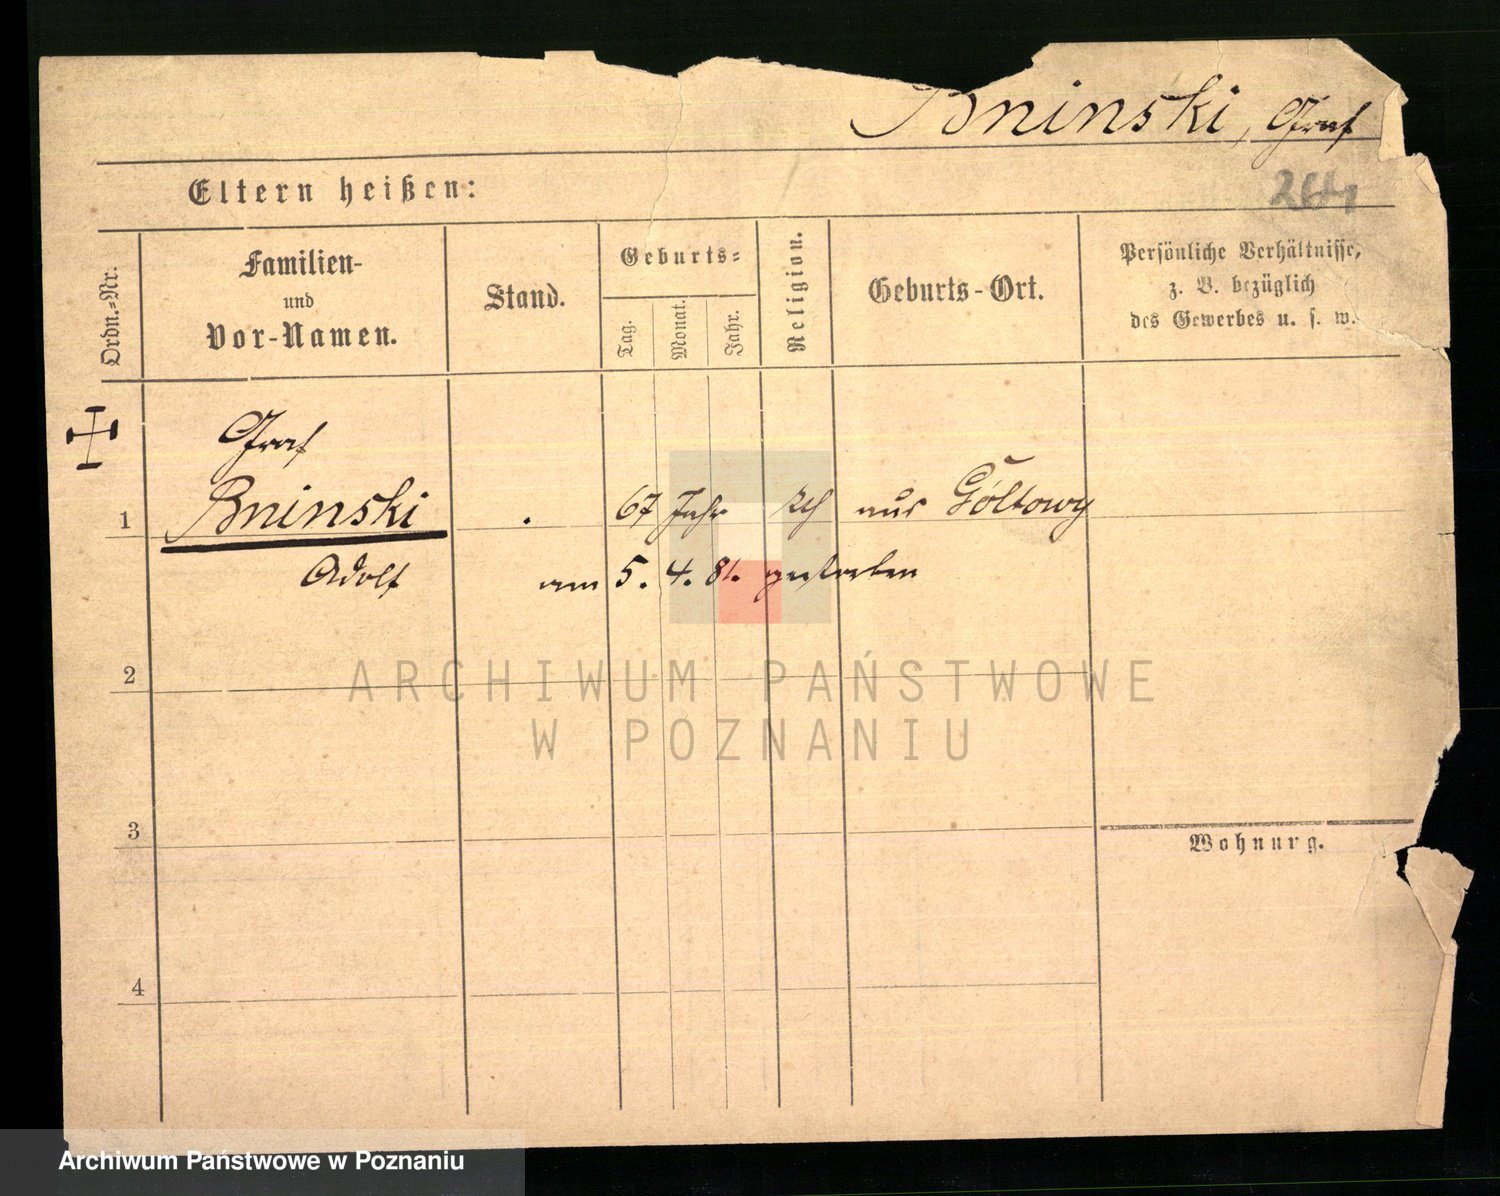 Bninski, Graf
Eltern heißen:
264
Ordn.-Nr.
Familien-
und
Vor-Namen.
Stand.
Geburts-
Tag.
Monat.
Jahr.
Religion.
Geburts-Ort.
Persönliche Verhältnisse,
z. B. bezüglich
des Gewerbes u. s. w.
Graf
1 Bninski . 67 Jahr kth aus Góltowy
Adolf am 5. 4. 81. gestorben
2
ARCHIWUM PAŃSTWOWE
W POZNANIU
3
Wohnung.
4
Archiwum Państwowe w Poznaniu